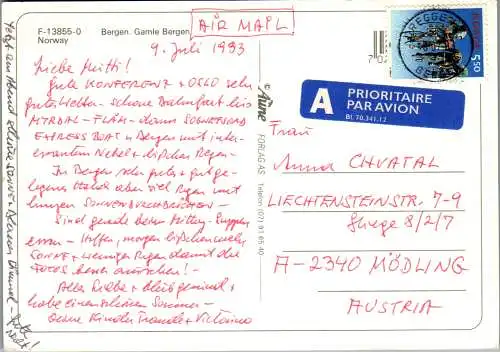 F-13855-0
Norway
Bergen. Gamle Bergen
AIR MAIL
9. Juli 1993
Liebe Mutti!
Gute KONFERENZ + OSLO sehr
gutes Wetter - schöne Bahnfahrt bis
MYRDAL - FLÅM - dann SOGNEFJORD
EXPRESS BOAT n. Bergen mit inter-
essantem Nebel + bißchen Regen -
In Bergen sehr gutes + gut ge-
legenes Hotel aber viel Regen mit
kurzen SONNENDURCHBRÜCHEN -
Sind gerade beim Hütten-Suppen
essen - Hoffen, morgen bißchen mehr
SONNE + weniger Regen damit die
FOTOS besser ausschauen!
Alles Liebe + bleib gesund +
habe einen schönen Sommer -
Deine Kinder Traude + Victorino
Jetzt am Abend schöne Sonne + blauer Himmel - Gute Nacht!
© Aune
FORLAG AS
Telefon (07) 91 65 40
NORGE
5.50
A PRIORITAIRE
PAR AVION
Bl. 70.341.12
Frau
Anna CHVATAL
LIECHTENSTEINSTR. 7-9
Stiege 8/2/7
A-2340 MÖDLING
AUSTRIA